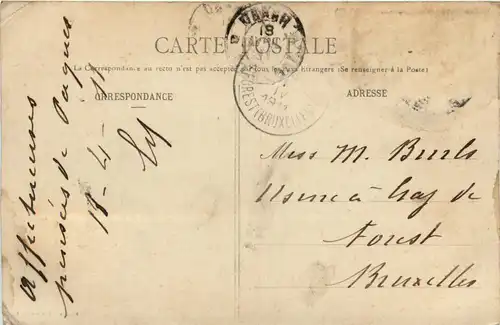 CARTE POSTALE
La Correspondance au recto n'est pas acceptée par tous les pays Etrangers (Se renseigner à la Poste)
CORRESPONDANCE
ADRESSE
Affectueuses
pensées de Pâques
18-4-11
Miss M.
Usine à Gaz de
Forest
Bruxelles
FOREST (BRUXELLES)